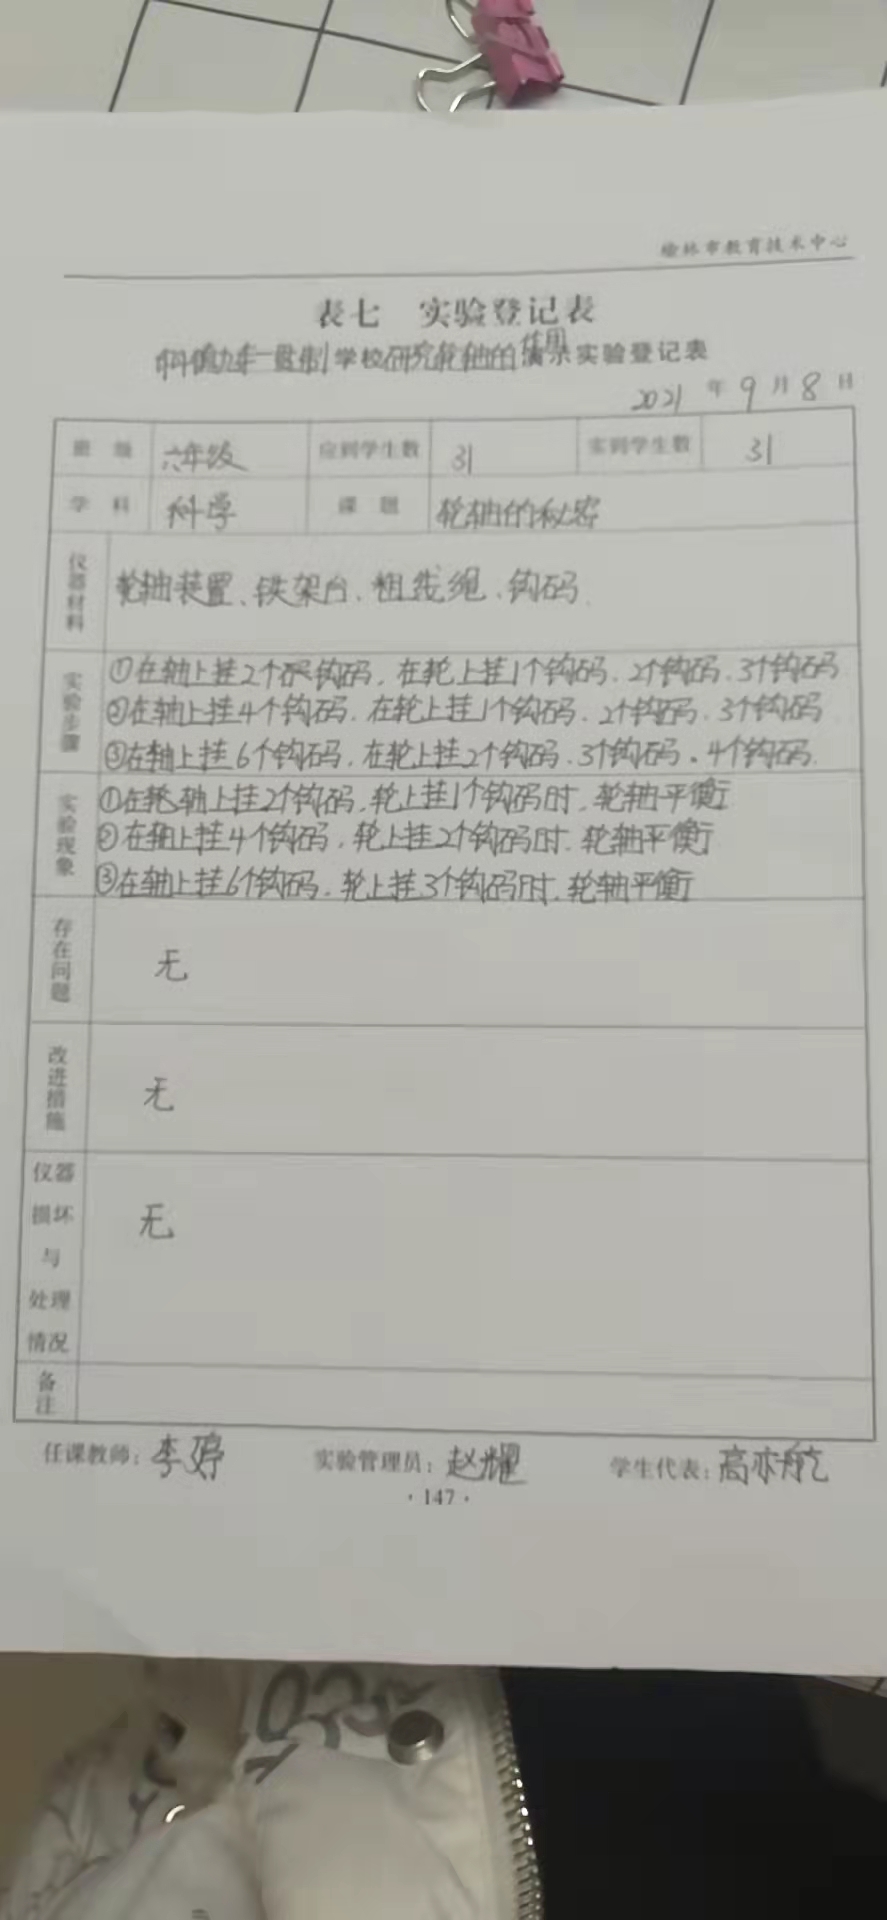 榆林市教育技术中心
表七 实验登记表
镇九年一贯制学校研究轮轴的作用演示实验登记表
2021年9月8日
班级 六年级 应到学生数 31 实到学生数 31
学科 科学 课题 轮轴的秘密
仪器材料 轮轴装置、铁架台、粗线绳、钩码.
实验步骤
①在轴上挂2个钩码,在轮上挂1个钩码、2个钩码、3个钩码
②在轴上挂4个钩码,在轮上挂1个钩码、2个钩码、3个钩码
③在轴上挂6个钩码,在轮上挂2个钩码、3个钩码、4个钩码.
实验现象
①在轮轴上挂2个钩码,轮上挂1个钩码时,轮轴平衡
②在轴上挂4个钩码,轮上挂2个钩码时,轮轴平衡
③在轴上挂6个钩码,轮上挂3个钩码时,轮轴平衡
存在问题 无
改进措施 无
仪器损坏与处理情况 无
备注
任课教师:李婷 实验管理员:赵耀 学生代表:高亦航
·147·